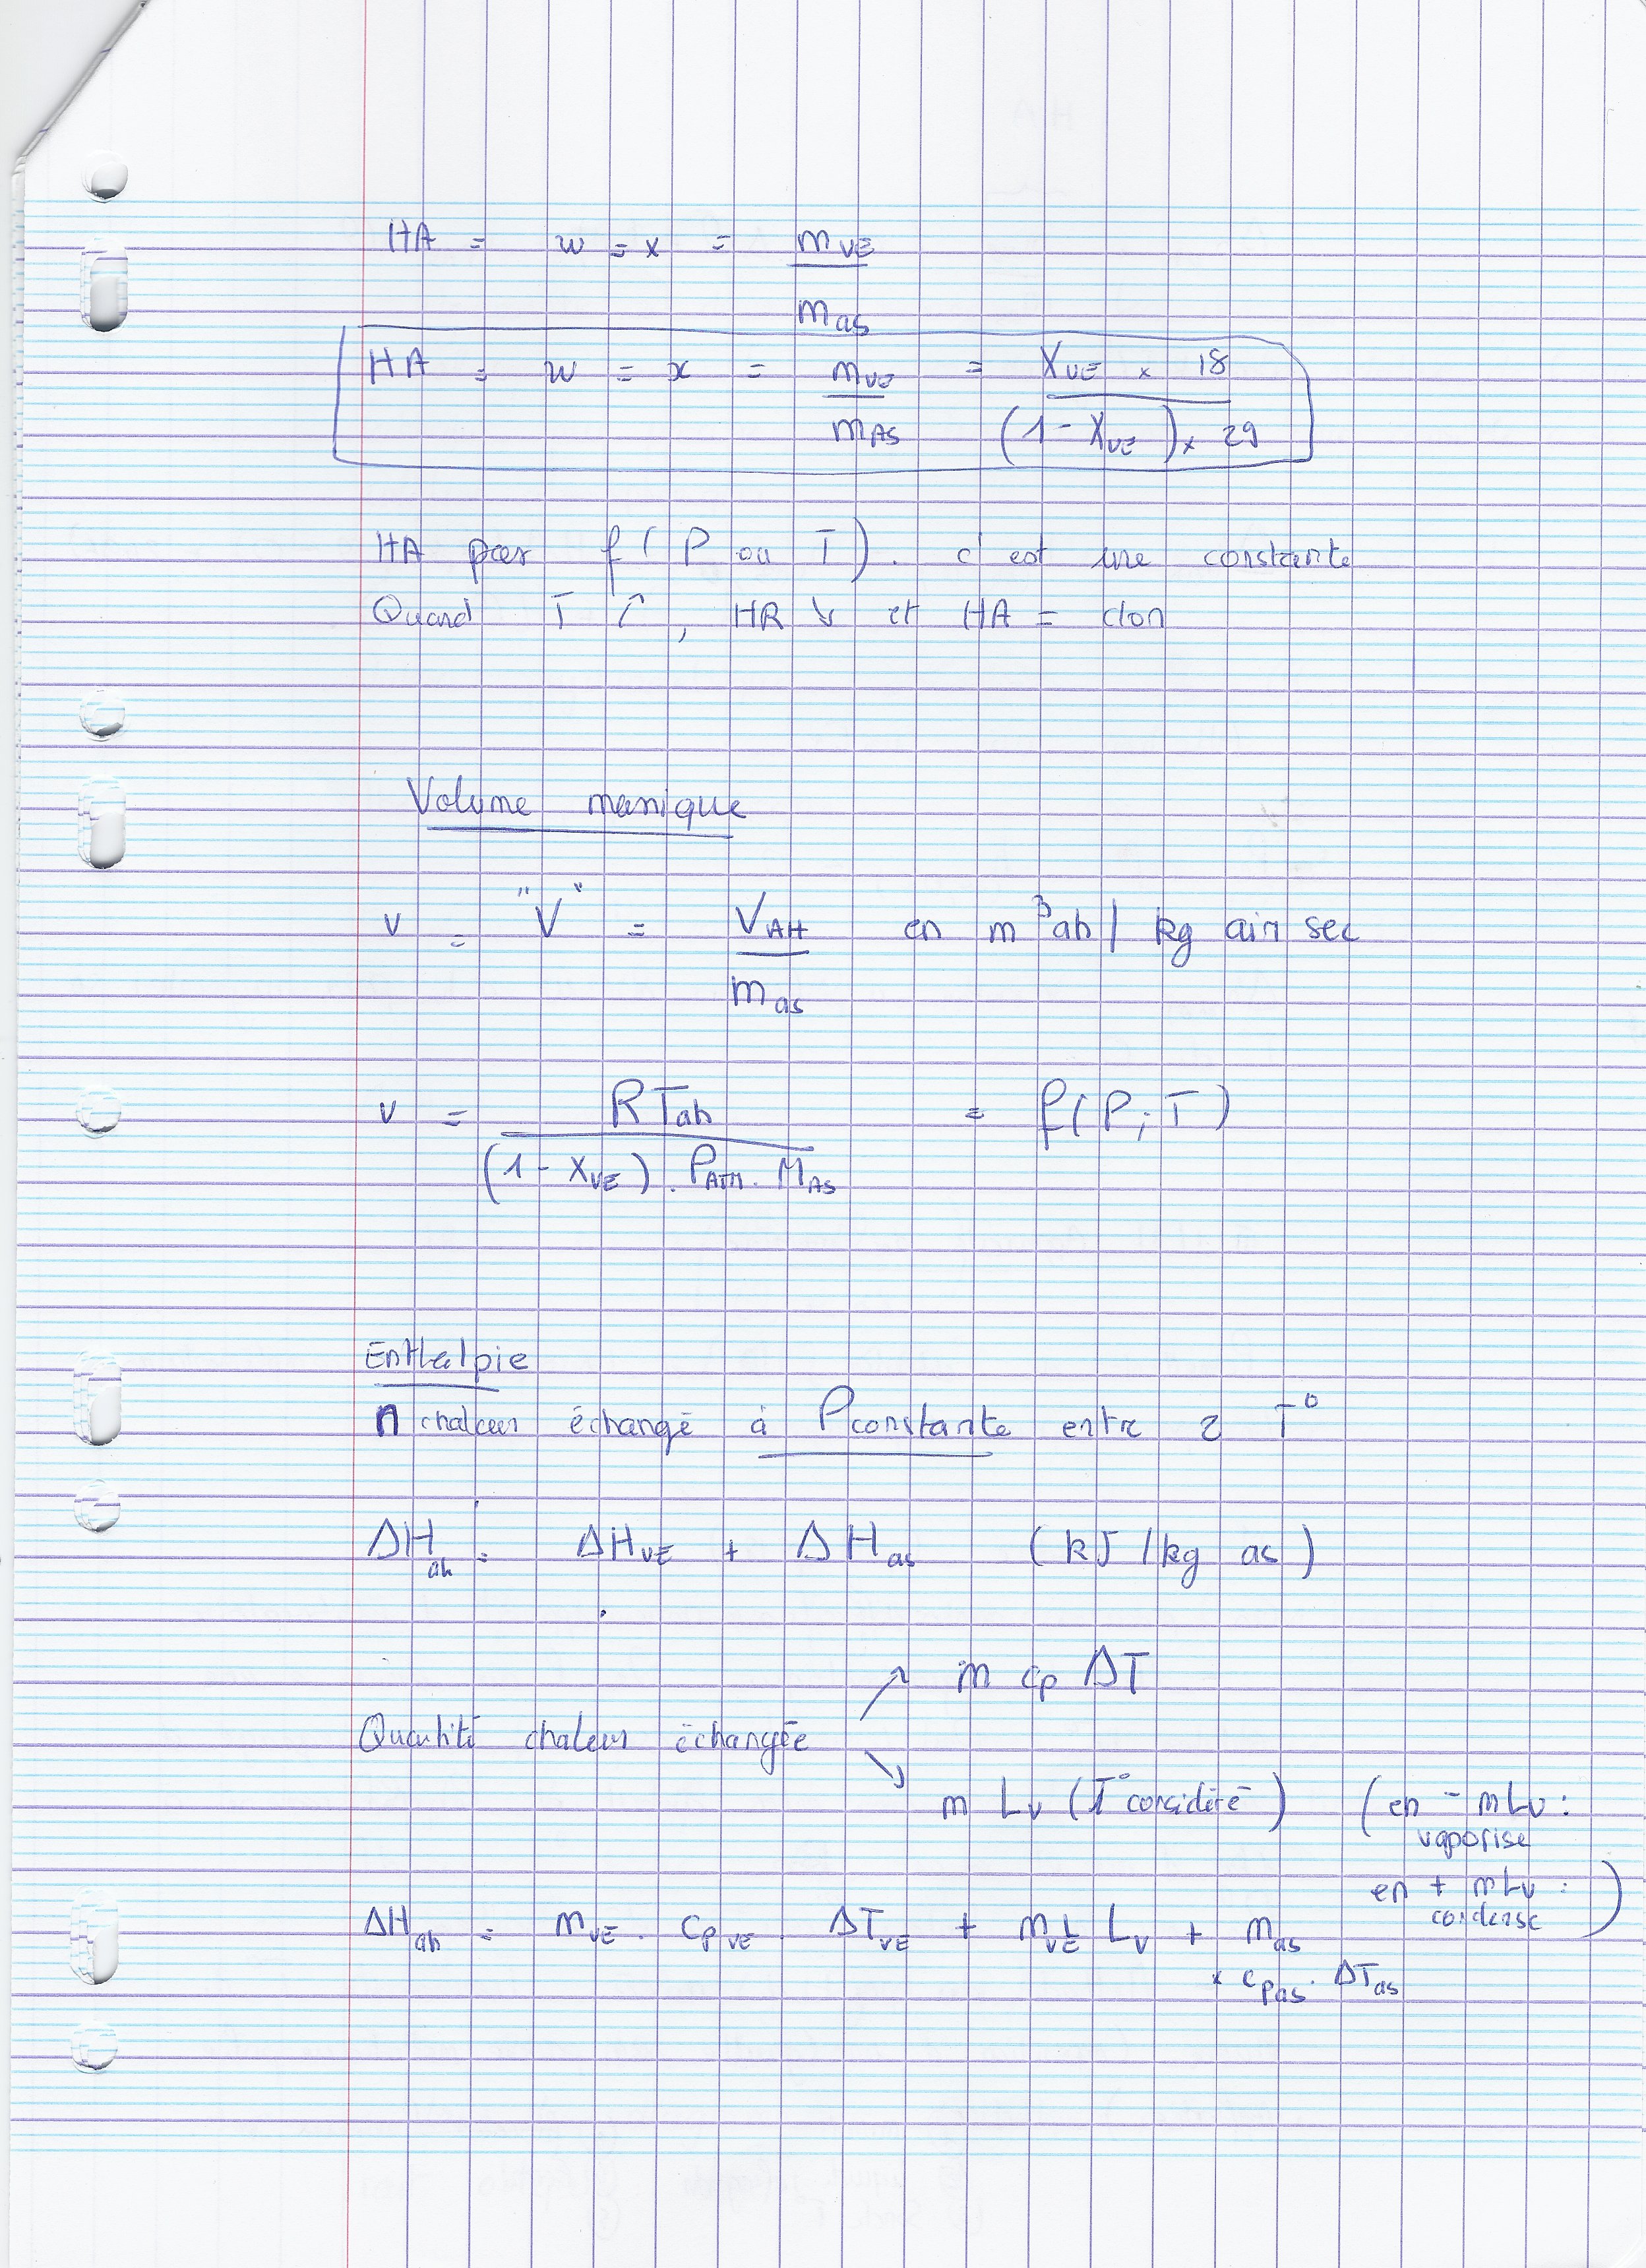 HA = w = x = m VE
m as
HA = w = x = m VE = X VE × 18
m AS (1 - X VE) × 29
HA pas f(P ou T). c'est une constante
Quand T ↗, HR ↘ et HA =
Volume massique
v = "V" = V AH en m³ ah / kg air sec
m as
v = R T ah = f(P; T)
(1 - X VE) . P ATM . M AS
Enthalpie
chaleur échangé à P constante entre 2 T°
ΔH ah = ΔH VE + ΔH as (kJ/kg as)
m cp ΔT
Quantité chaleur échangée
m Lv (T° considéré) (en - mLv :
vaporise
en + mLv :
condense )
ΔH ah = m VE . cp VE . ΔT VE + m VE Lv + m as
× cp as . ΔT as